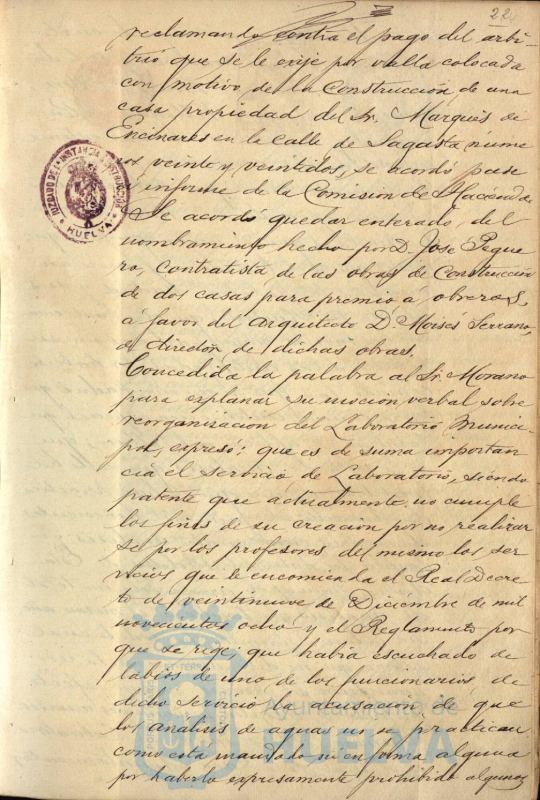 224
reclamando contra el pago del arbi-
trio que se le exije por valla colocada
con motivo de la Construcción de una
casa propiedad del Sr. Marqués de
Encinares en la calle de Sagasta núme-
ros veinte y veintidos, se acordó pase
á informe de la Comision de Hacienda.
Se acordó quedar enterado, del
nombramiento hecho por D. José Pegue-
ro, contratista de las obras de Construcción
de dos casas para premio á obreros,
á favor del Arquitecto D. Moisés Serrano,
de director de dichas obras.
Concedida la palabra al Sr. Morano
para explanar su moción verbal sobre
reorganización del Laboratorio Munici-
pal, expresó: que es de suma importan-
cia el servicio de Laboratorio, siendo
patente que actualmente no cumple
los fines de su creación por no realizar
se por los profesores del mismo los ser-
vicios que le encomienda el Real Decre-
to de veintinueve de Diciembre de mil
novecientos ocho y el Reglamento por
que se rige; que habia escuchado de
labios de uno de los funcionarios de
dicho servicio la acusación de que
los análisis de aguas no se practican
como esta mandado ni en forma alguna
por haberlo expresamente prohibido algunos
JUZGADO DE 1ª INSTANCIA É INSTRUCCION
HUELVA
Ayuntamiento de
HUELVA